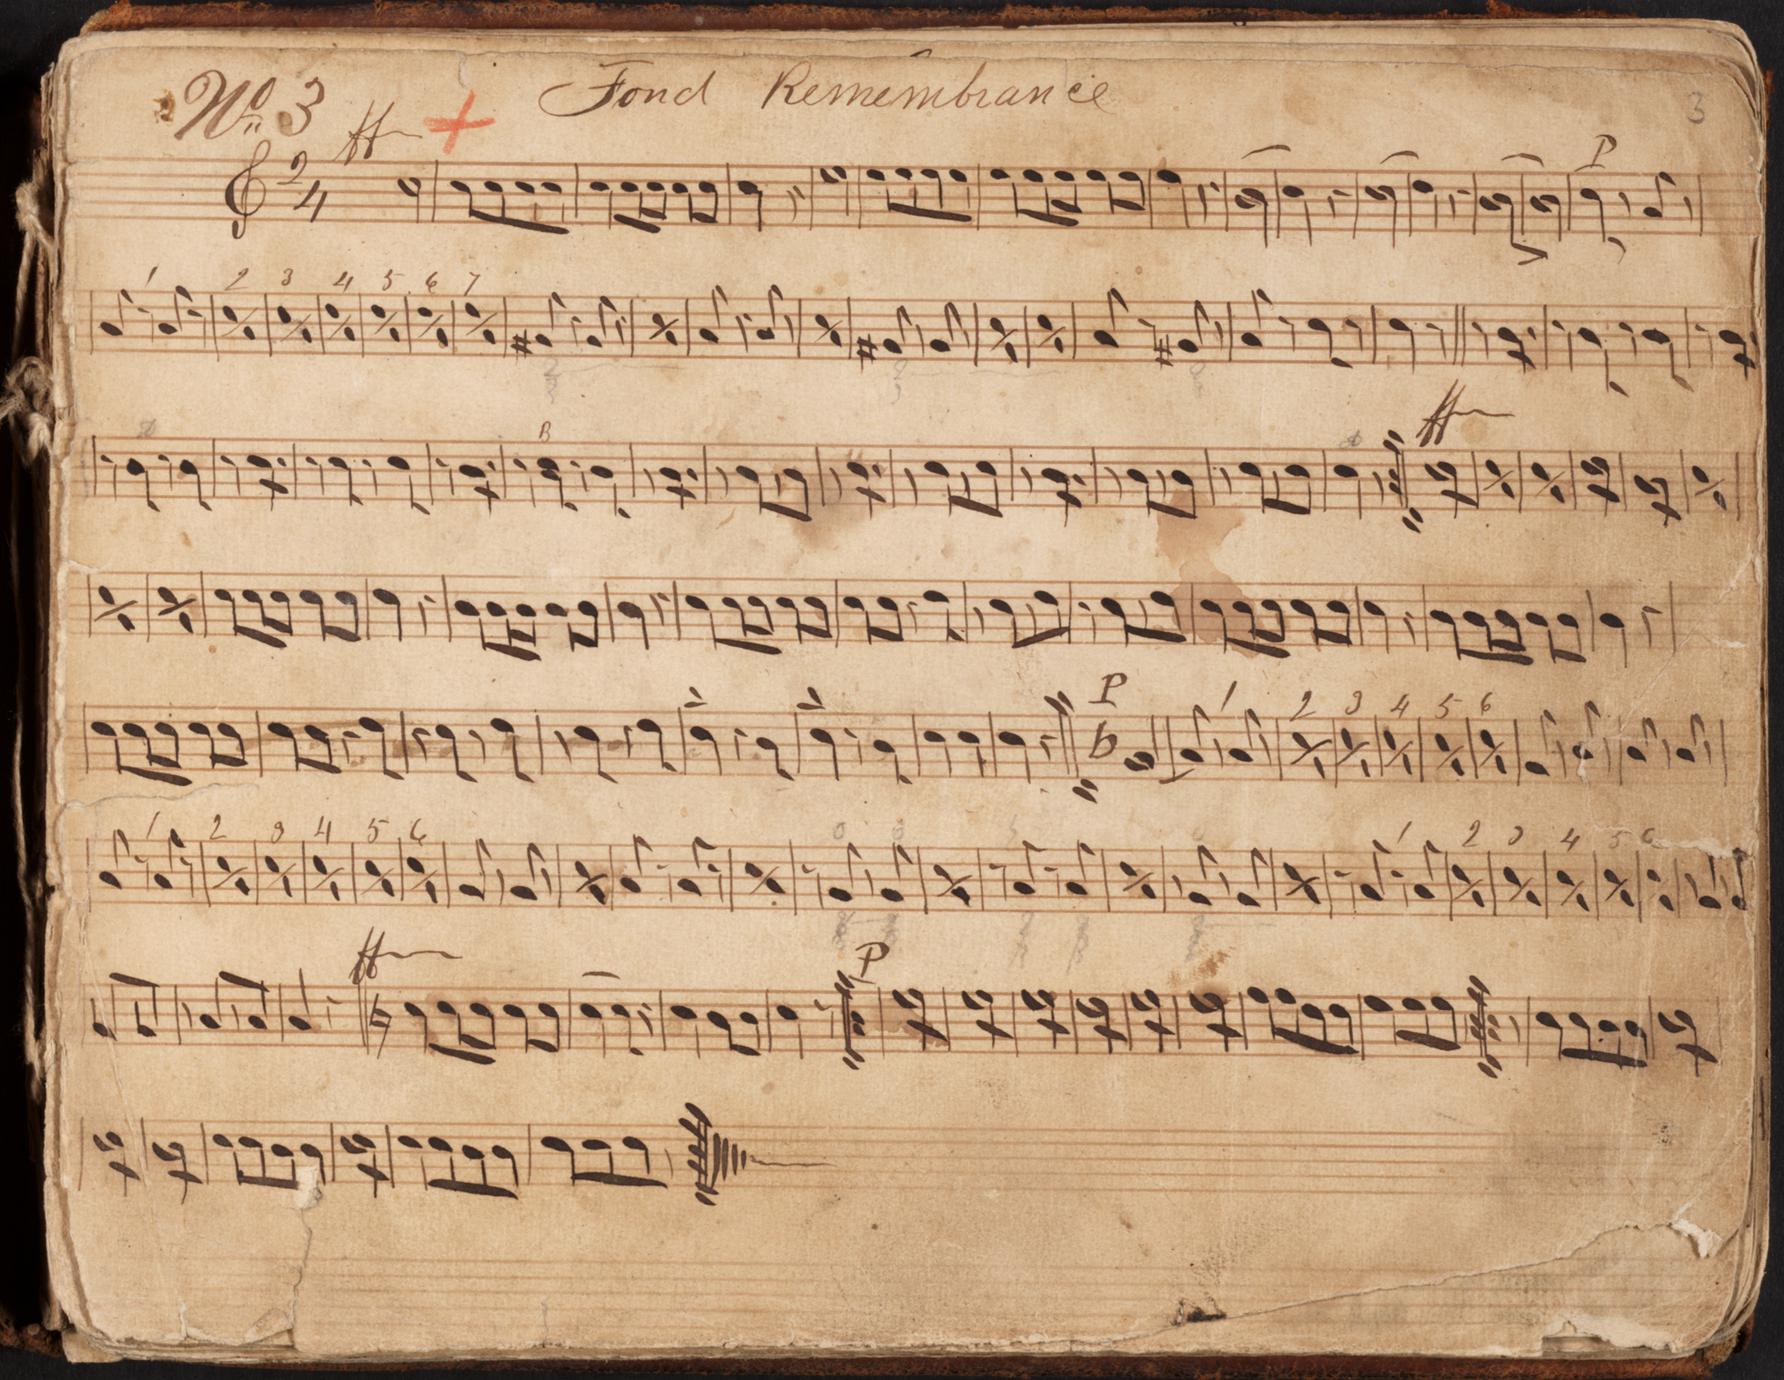 No. 3 Fond Remembrance 3
ff P
2/4
1 2 3 4 5 6 7
ff
P
1 2 3 4 5 6
1 2 3 4 5 6 1 2 3 4 5 6
ff P